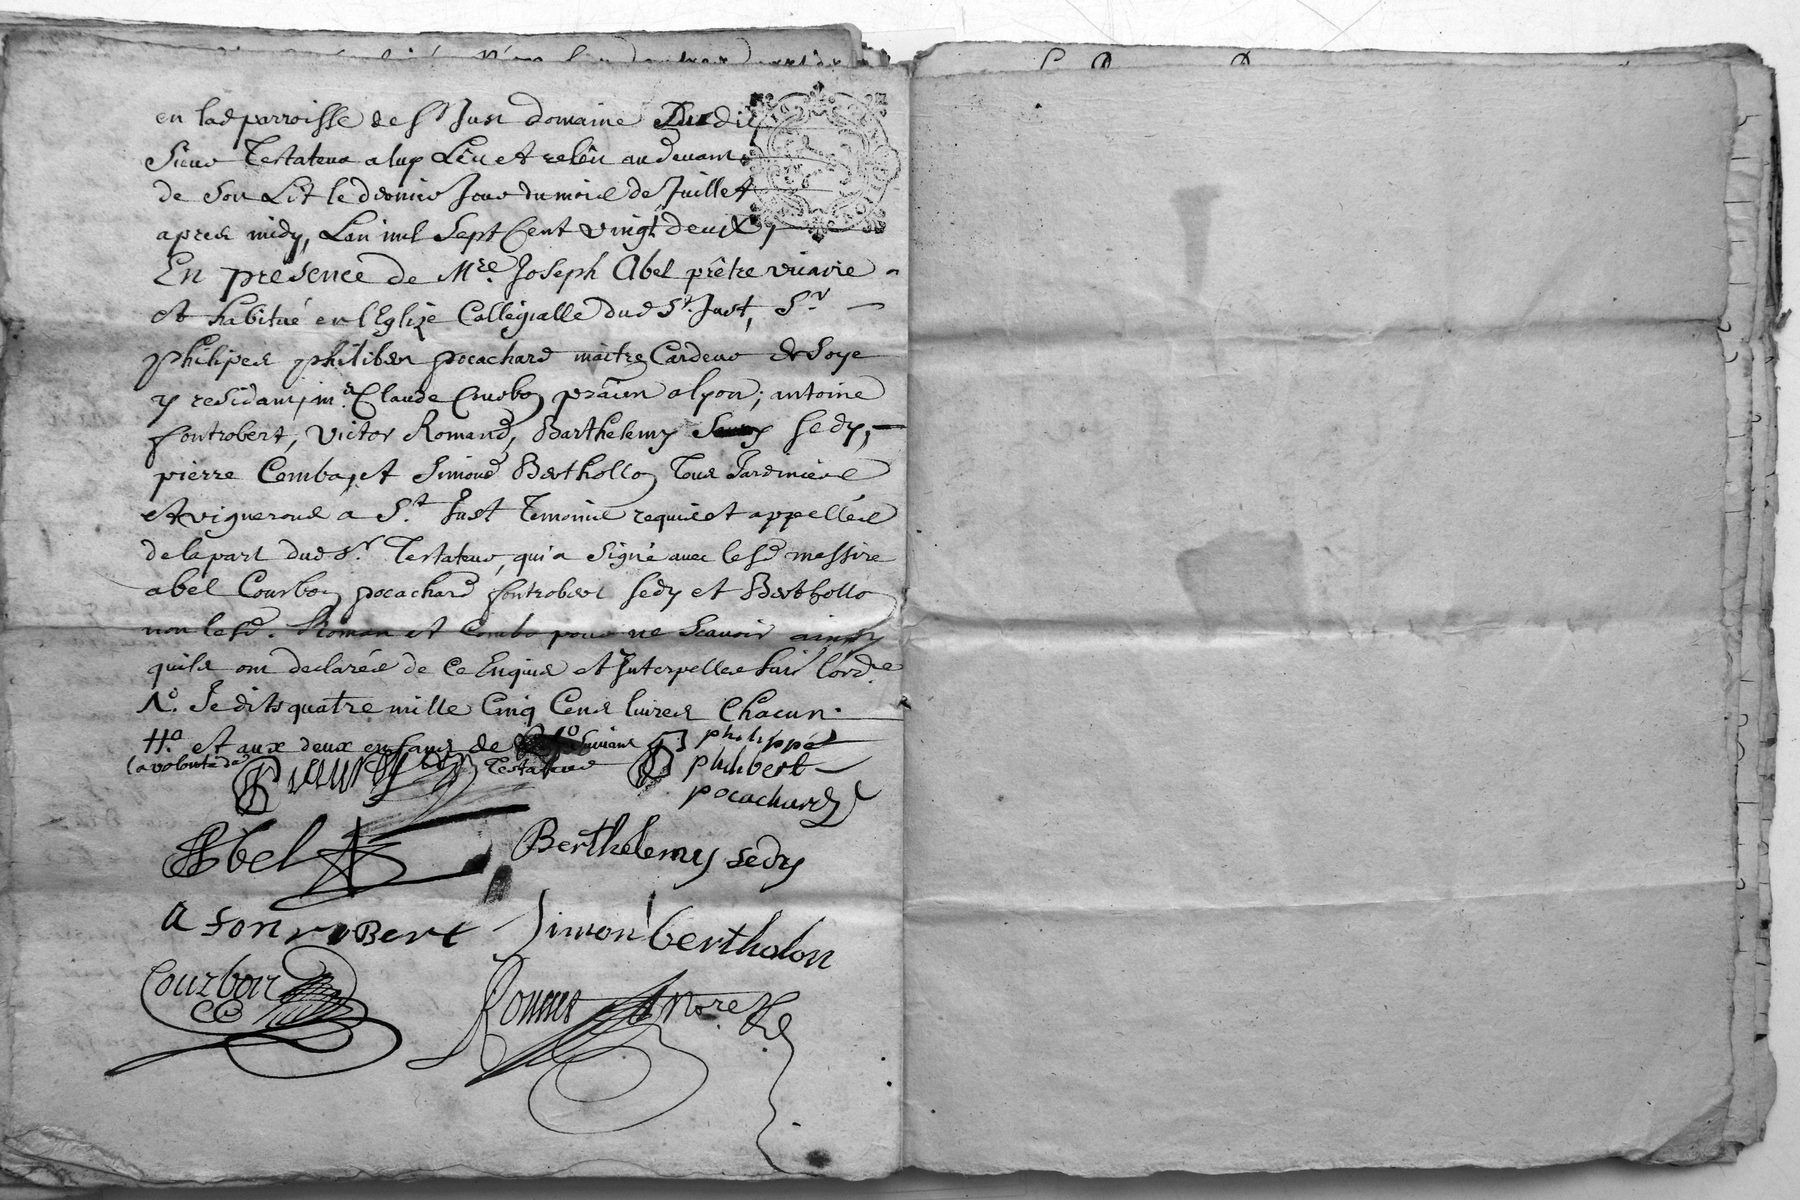 en lad parroisse de St Just domaine Dudit
Sieur Testateur alup Leu et releu au devant
de Son Lit le dernier Jour du mois de Juillet
apres midy, Lan mil Sept Cent vingt deux,
En presence de Mre. Joseph Abel prêtre vicaire
et habitué en l'Eglize Collegialle dud St. Just, Sr
philipes philibert pocachard maitre Cardeur de Soye
y residant, me Claude Courbon praticien a lyon; antoine
fontrobert, Victor Romand, Barthelemy Sedy,
pierre Comba, et Simond Berthollon Tous Jardiniers
et vignerons a St. Just Temoins requis et appellés
de la part dud Sr. Testateur, qui a Signé avec led messire
abel Courbon pocachard fontrobert Sedy et Berthollon
non lesd. Roman et Comba pour ne Scavoir ainsy
quils ont declarés de ce Enquis et Interpellés Suiv lord.e
No. Je dits quatre mille Cinq Cens livres Chacun.
Ho. et aux deux enfans de Suivant
la volonté de Testateur
philippes
philibert
pocachard
Abel
Berthelemy sedy
a fonrobert
Simon bertholon
Courbon
Nore